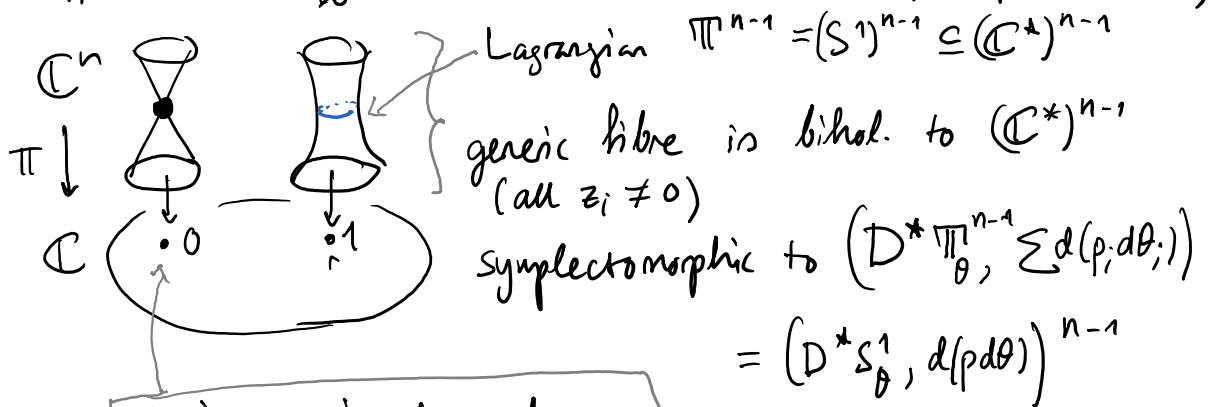 Lagrangian 𝕋ⁿ⁻¹ = (S¹)ⁿ⁻¹ ⊆ (ℂ*)ⁿ⁻¹
ℂⁿ
π
generic fibre is bihol. to (ℂ*)ⁿ⁻¹
(all zᵢ ≠ 0)
ℂ
0
1
symplectomorphic to (D*𝕋ⁿ⁻¹_θ, Σd(pᵢdθᵢ))
= (D*S¹_θ, d(pdθ))ⁿ⁻¹